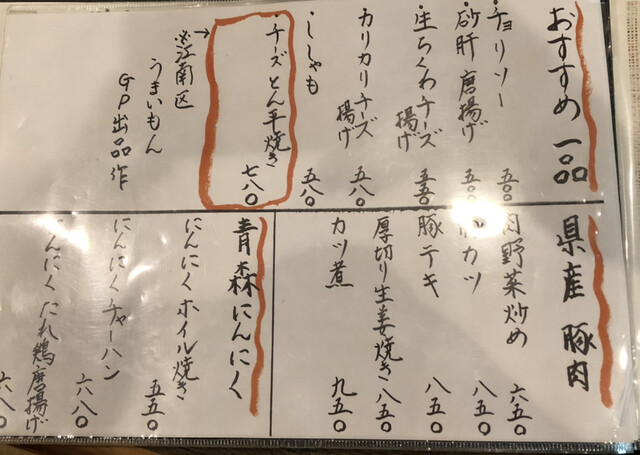 おすすめ一品
・チョリソー 五〇〇
・砂肝唐揚げ 五〇〇
・生ちくわチーズ揚げ 五五〇
カリカリチーズ揚げ 五八〇
・ししゃも 五八〇
・チーズとん平焼き 七八〇
※江南区
うまいもん
GP出品作
県産豚肉
肉野菜炒め 六五〇
カツ 八五〇
豚テキ 八五〇
厚切り生姜焼き 八五〇
カツ煮 九五〇
青森にんにく
にんにくホイル焼き 五五〇
にんにくチャーハン 六八〇
にんにくたれ鶏唐揚げ 六八〇